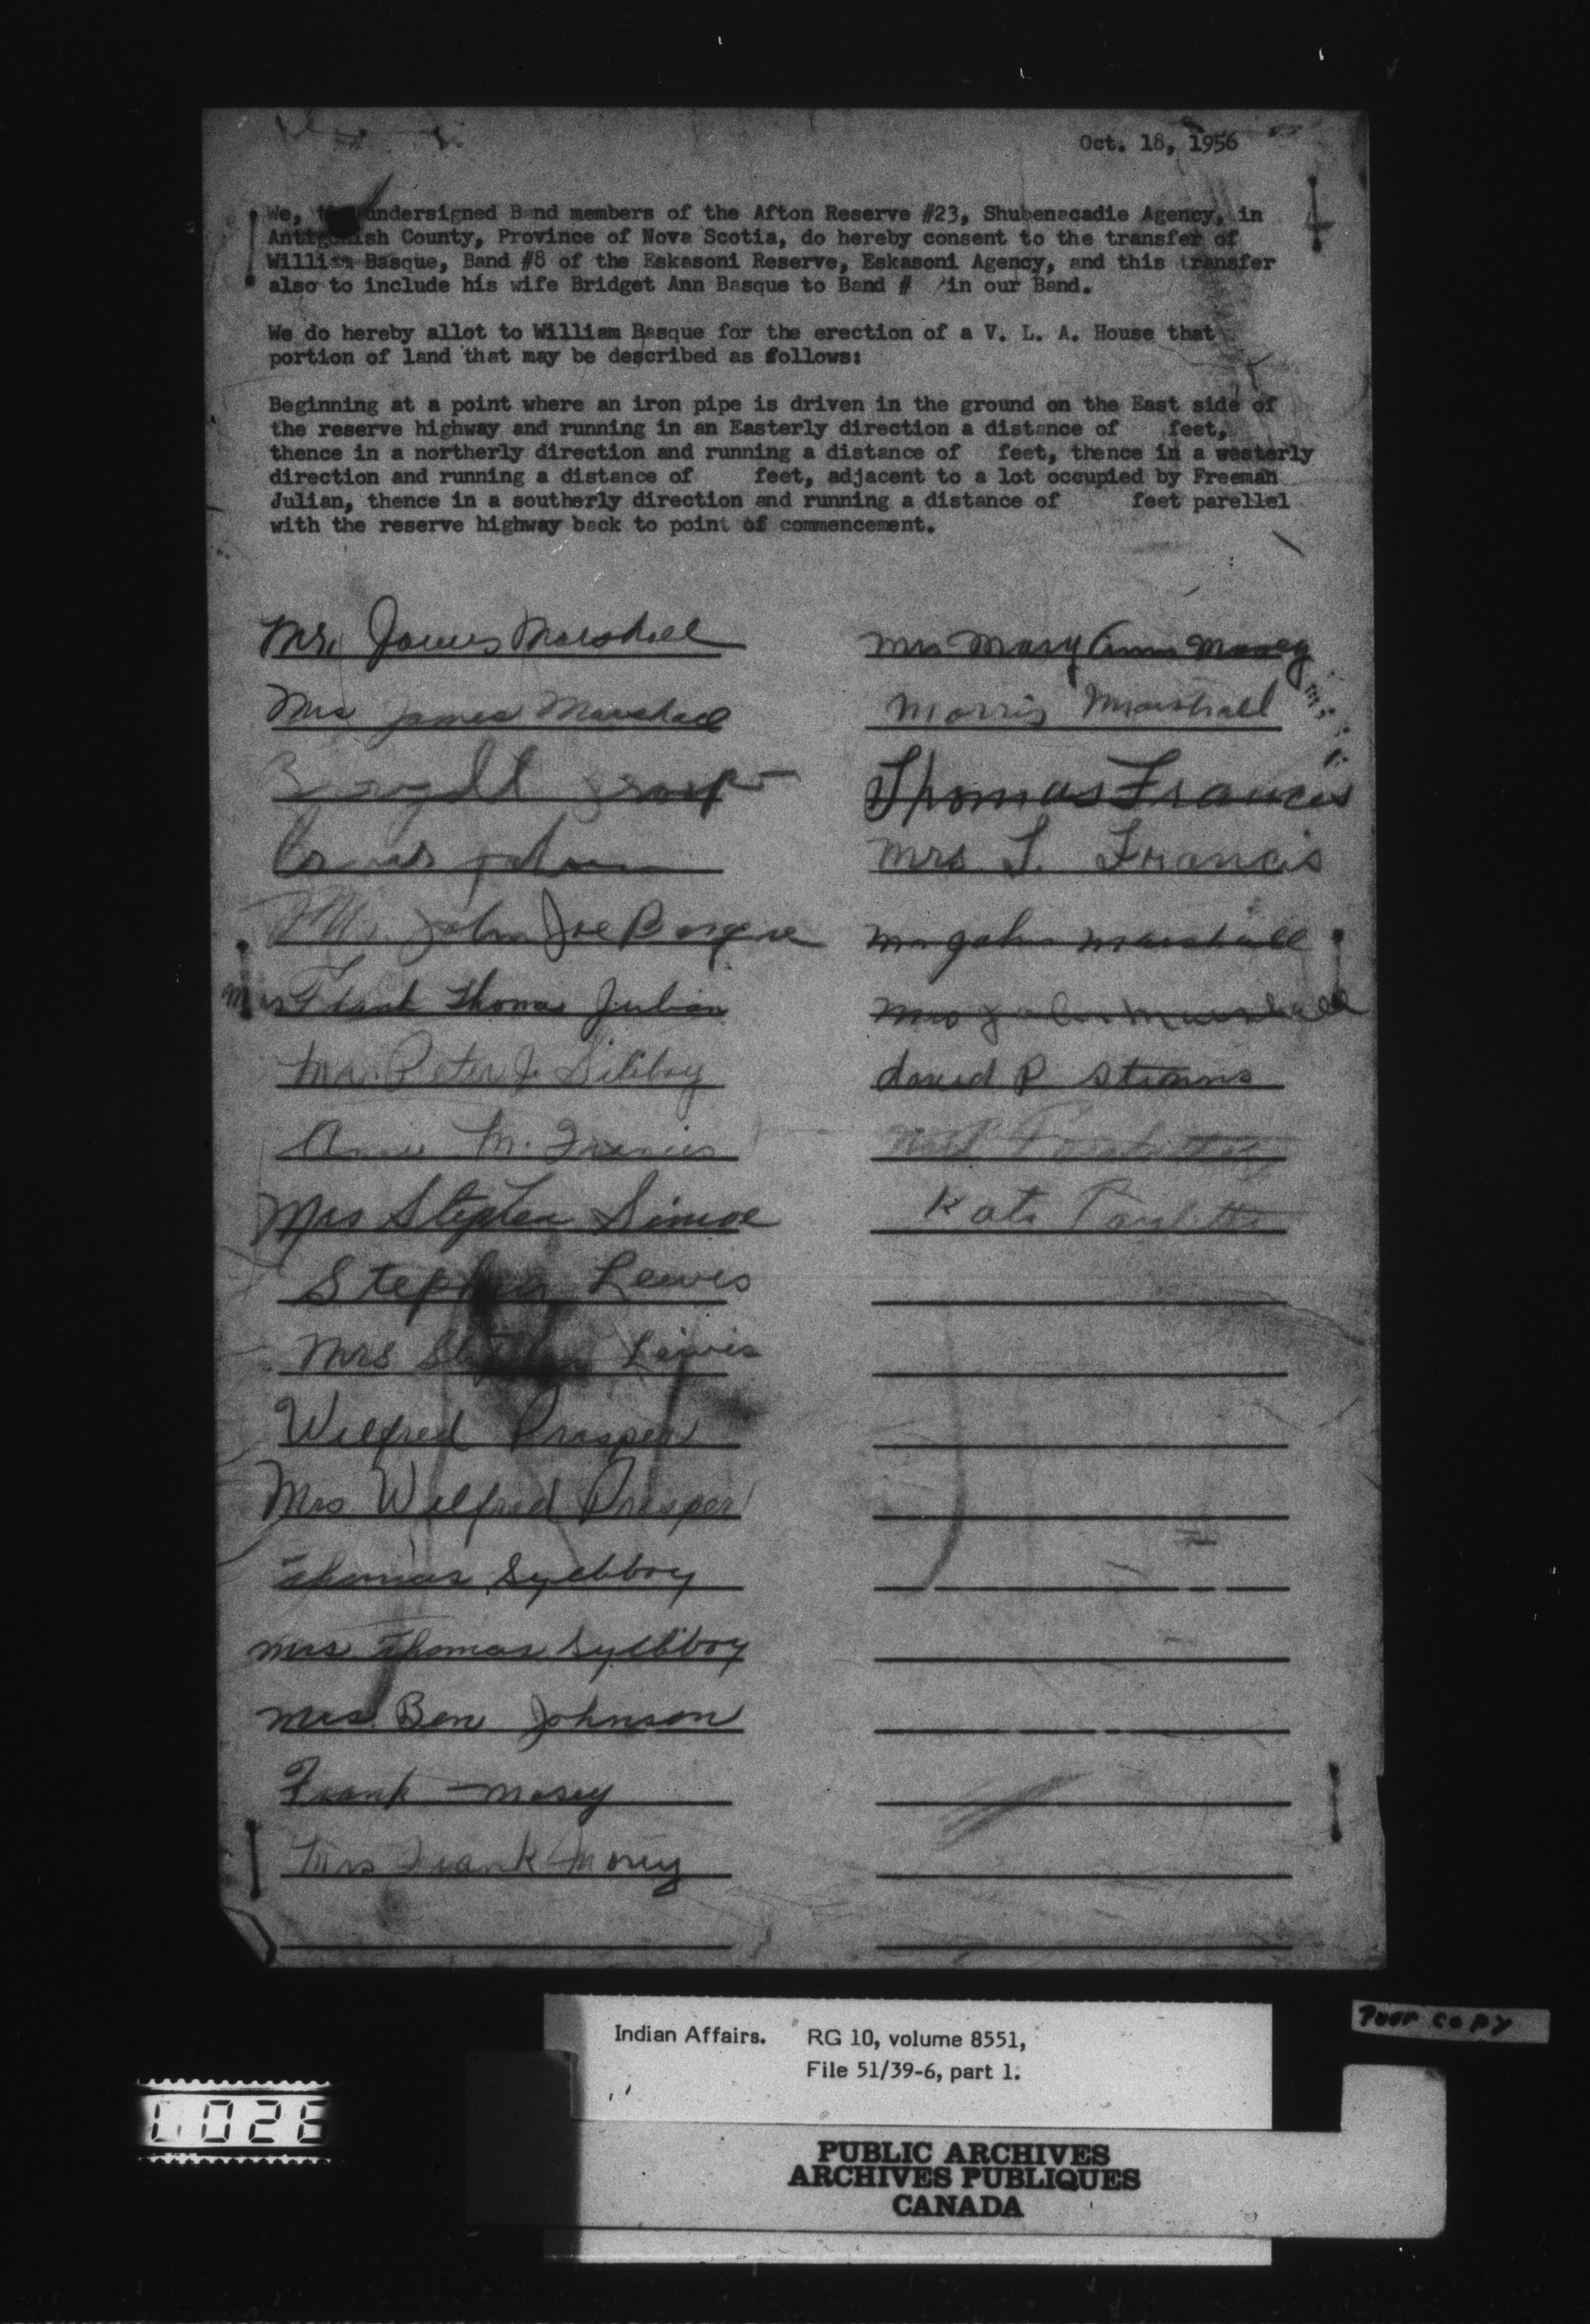 Oct. 18, 1956
We, undersigned Band members of the Afton Reserve #23, Shubenacadie Agency, in
Antigonish County, Province of Nova Scotia, do hereby consent to the transfer of
William Basque, Band #8 of the Eskasoni Reserve, Eskasoni Agency, and this transfer
also to include his wife Bridget Ann Basque to Band # in our Band.
We do hereby allot to William Basque for the erection of a V. L. A. House that
portion of land that may be described as follows:
Beginning at a point where an iron pipe is driven in the ground on the East side of
the reserve highway and running in an Easterly direction a distance of feet,
thence in a northerly direction and running a distance of feet, thence in a westerly
direction and running a distance of feet, adjacent to a lot occupied by Freeman
Julian, thence in a southerly direction and running a distance of feet parellel
with the reserve highway back to point of commencement.
Mr. James Marshall
Mrs James Marshall
John Joe Basque
Mrs Frank Thomas Julian
Peter J.
M. Francis
Mrs Stephen
Stephen Lewis
Mrs Stephen Lewis
Wilfred Prosper
Mrs Wilfred Prosper
Thomas Syllboy
Mrs Thomas Syllboy
Mrs. Ben Johnson
Frank
Mrs Frank
Mrs Mary Ann
Morris Marshall
Thomas Francis
Mrs. T. Francis
Mr John Marshall
Mrs John Marshall
david P
Poor copy
Indian Affairs. RG 10, volume 8551,
File 51/39-6, part 1.
0026
PUBLIC ARCHIVES
ARCHIVES PUBLIQUES
CANADA